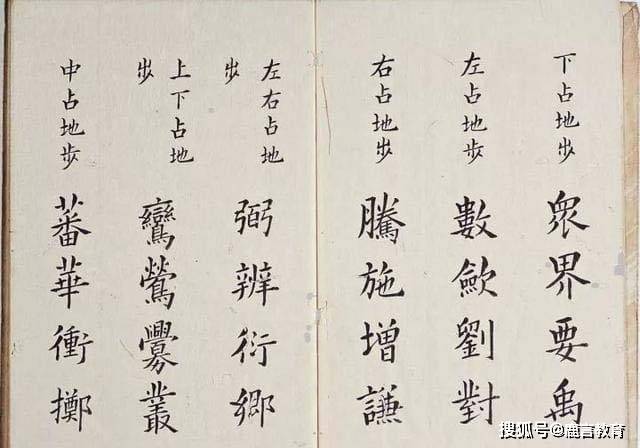 下占地步
眾界要禹
左占地步
數歛劉對
右占地步
騰施增謙
左右占地
步
弼辨衍鄉
上下占地
步
鸞鶯爨叢
中占地步
蕃華衝擲
搜狐号@鹿言教育